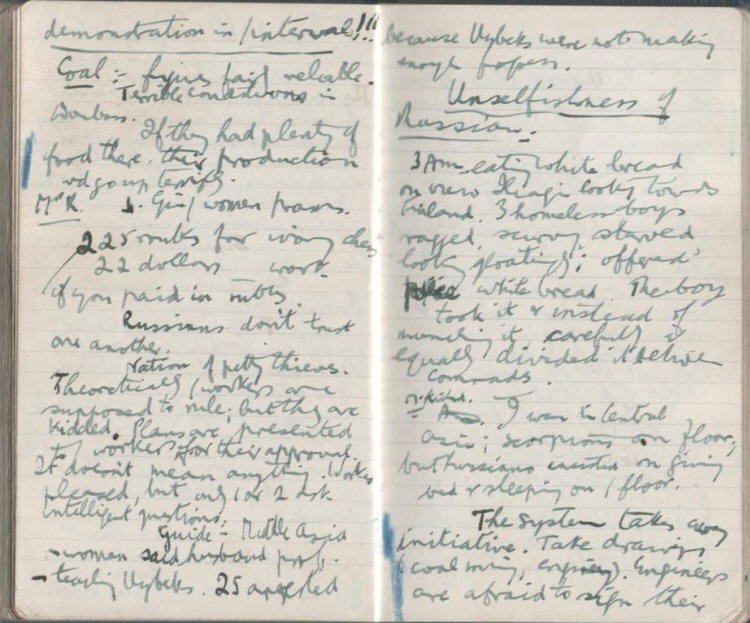 demonstration in / interval!!!
Coal :- figures fairly reliable.
Terrible conditions in
Donbass.
If they had plenty of
food there, their production
wd go up terrifly.
Mr K. 1. Gin / women
225 roubles for ivory chess
22 dollars work
if you paid in rubls.
Russians don't trust
one another.
Nation of petty thieves.
Theoretically / workers are
supposed to rule; but they are
kidded. Plans are presented
to / workers for their approval.
It doesn't mean anything. Workers
pleased, but only 1 or 2 ask
intelligent questions.
Guide - Middle Asia
- women said husband prof.
- teaching Uzbeks. 25 arrested
because Uzbeks were not making
enough progress.
Unselfishness of
Russian.
3 Am. eating white bread
on view looking towards
Finland. 3 homeless boys
ragged, scurvy, starved
looking floating; offered
white bread The boy
took it & instead of
munching it carefully &
equally divided it between
comrads.
I was in Central
Asia; scorpions on floor,
but Russians insisted on giving
bed & sleeping on / floor.
The system takes away
initiative. Take drawings
(coal mining, enginry). Engineers
are afraid to sign their